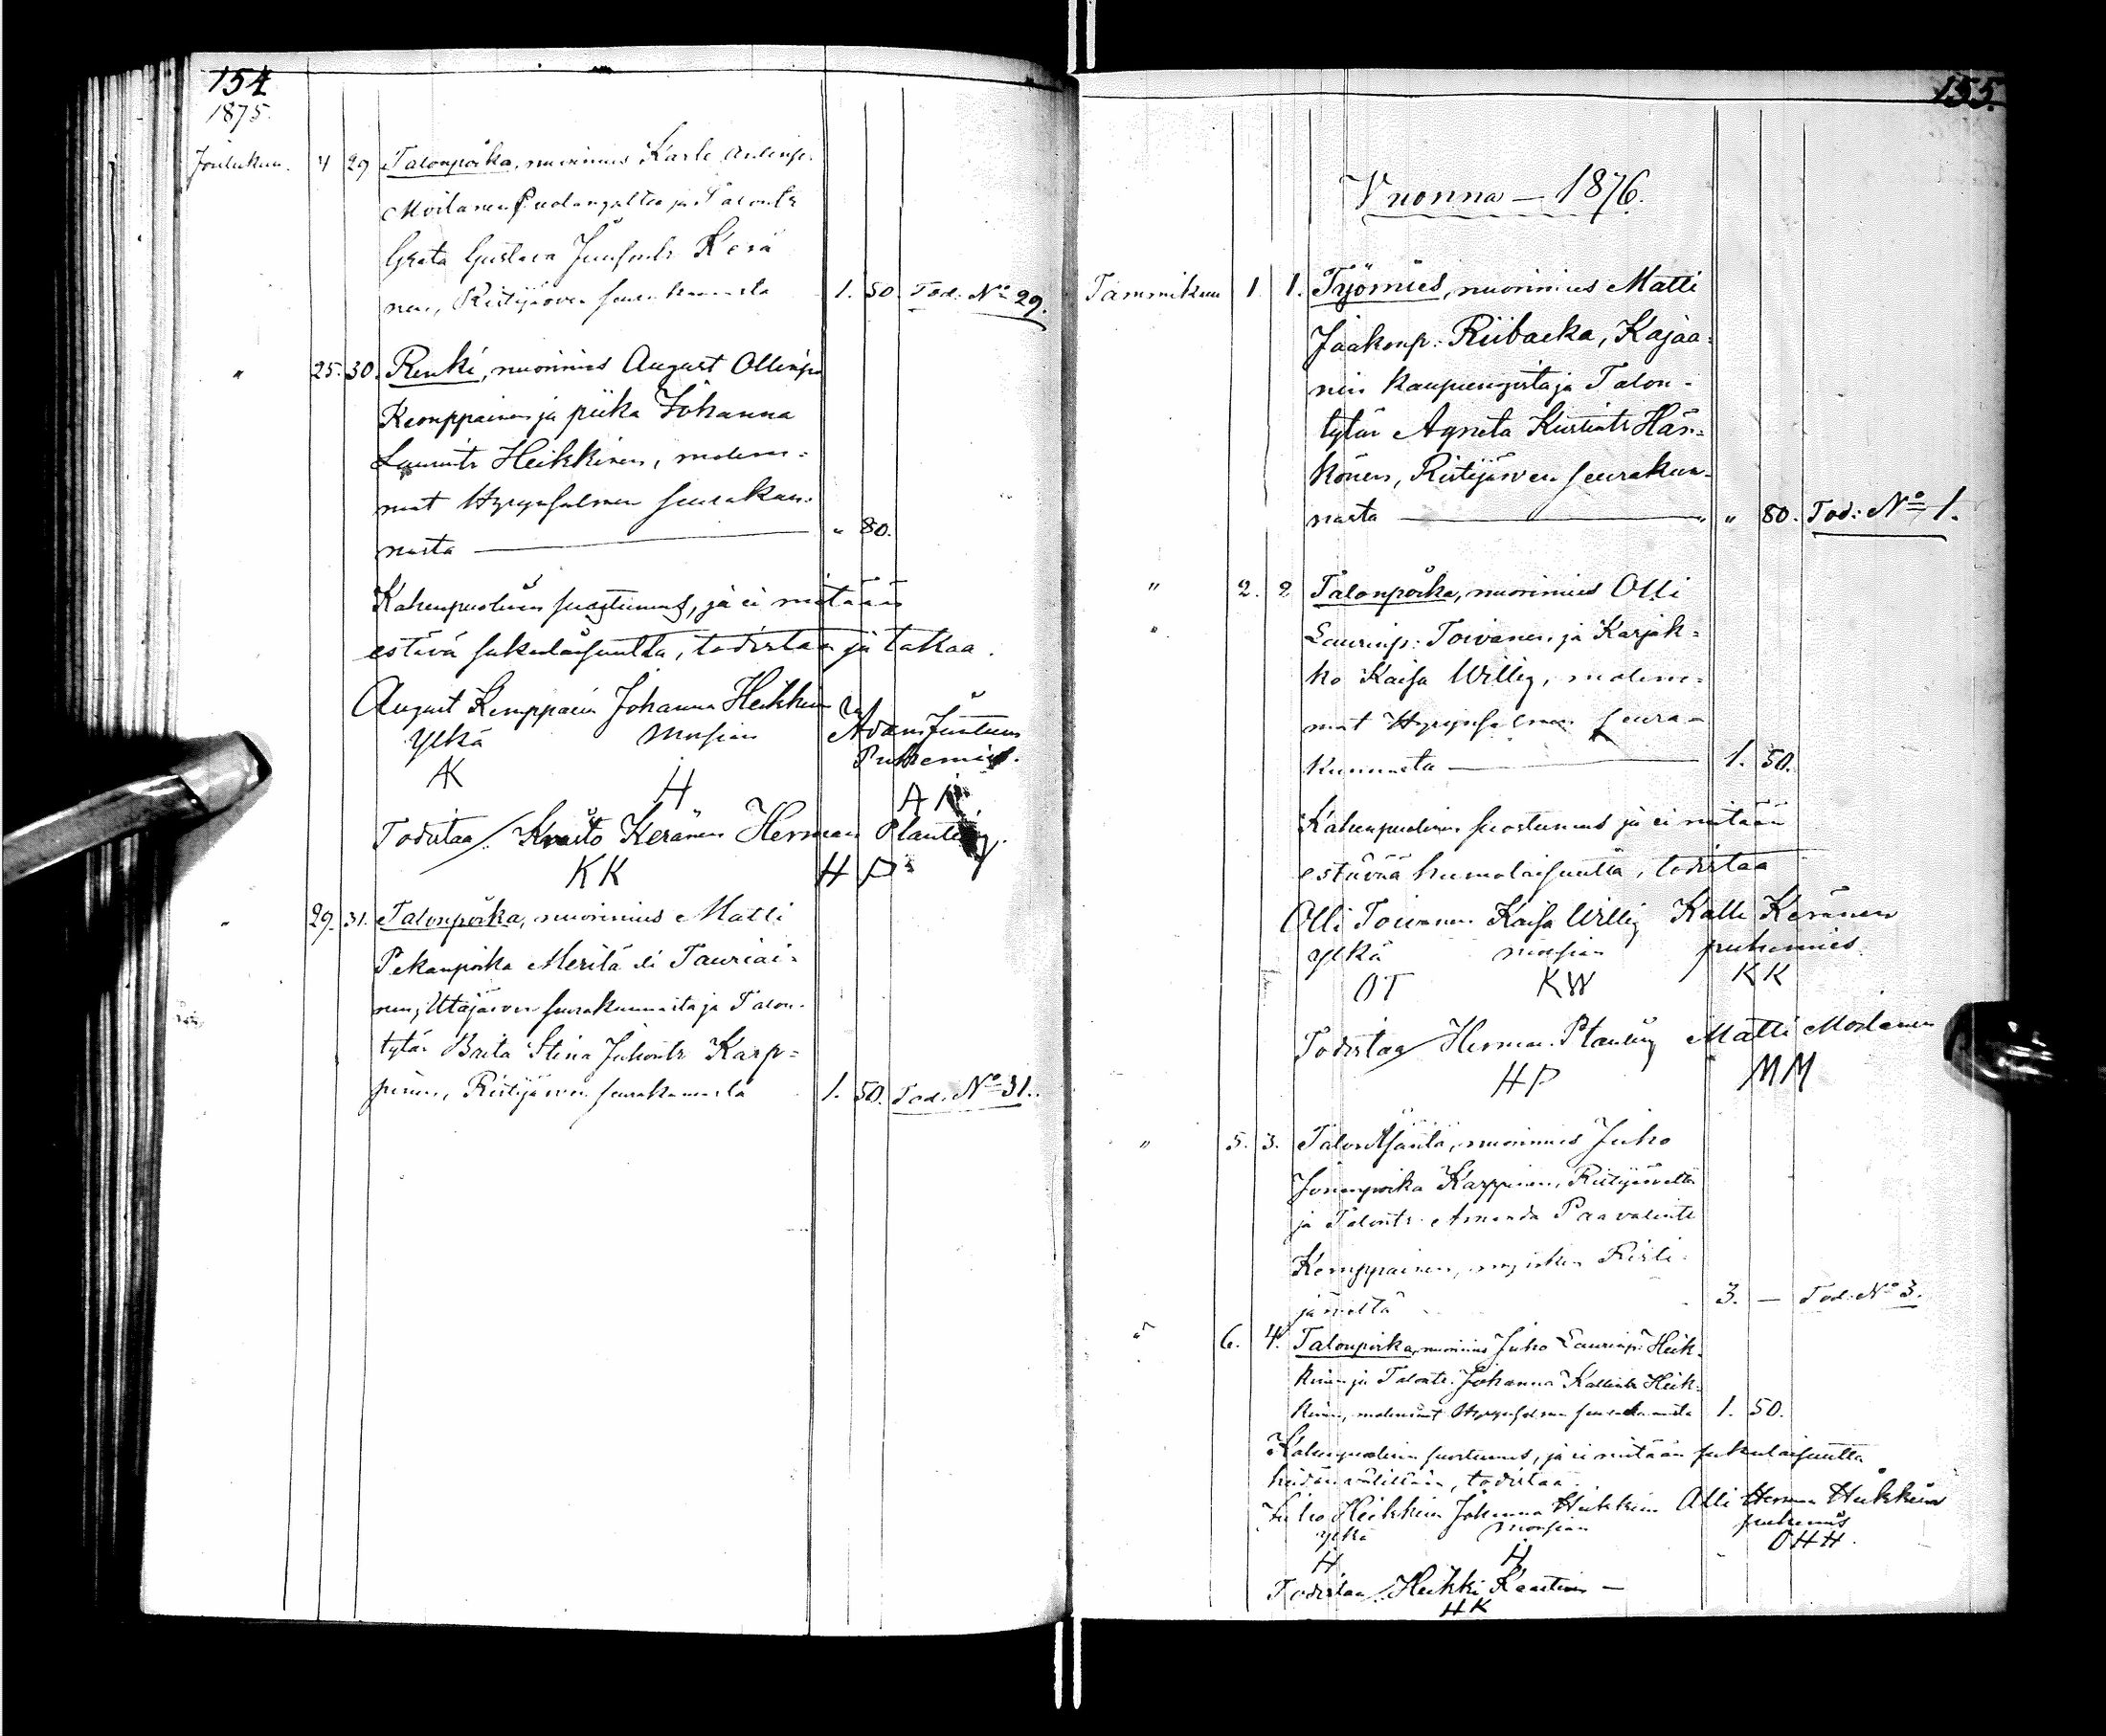 154
1875.
Joulukuu. 4 29 Talonpoika, nuorimies Karle Antinp.
Moilanen Puolangalta ja Talontr
Greta Gustava Juusontr Kerä
nen, Ristijärven seurakunnasta 1. 50. Tod: No 29.
" 25. 30. Renki, nuorimies August Ollinp.
Kemppainen ja piika Johanna
Laurintr Heikkinen, molem=
mat Hyrynsalmen seurakun=
nasta — " 80.
Kahenpuolinen suostumus, ja ei mitään
estävä sukulaisuutta, todistaa ja takaa.
August Kemppain Johanna Heikkin Adam Juntunen
Ylkä Morsian Puhemies.
AK H A
Todistaa /: Keränen Herman Planting.
KK HP
" 29. 31. Talonpoika, nuorimies Matti
Pekanpoika Merilä eli Tauriai=
nen, Utajärven seurakunnasta ja Talon-
tytär Brita Stina Juhontr Karp=
pinen, Ristijärven seurakunnasta 1. 50. Tod: No 31.
155.
Vuonna — 1876.
Tammikuu 1. 1. Työmies, nuorimies Matti
Jaakonp: Riibacka, Kajaa=
nin kaupungista ja Talon-
tytär Agneta Hän=
könen, Ristijärven seurakun-
nasta — " 80. Tod: No 1.
" 2. 2 Talonpoika, nuorimies Olli
" Laurinp: Toivanen, ja Karjak=
ko Kaisa Willig, molem=
mat Hyrynsalmen seura-
kunnasta — 1. 50.
Kahenpuolinen suostumus ja ei mitään
estävää, todistaa
Olli Toivanen Kaisa Willig Kalle Keränen
ylkä morsian puhemies.
OT KW KK
Todistaa Herman Planting Matti Moilanen
HP MM
" 5. 3. nuorimies Juho
Karppinen, Ristijärveltä
ja Talontr. Amanda Paavalintr
Kemppainen, Risti-
järveltä 3. — Tod: No 3.
" 6. 4. Talonpoika, nuorimies Juho Laurinp: Heik-
kinen ja Talontr. Johanna Kallentr Heik-
kinen, molemmat Hyrynsalmen seurakunnasta 1. 50.
Kahenpuolinen suostumus, ja ei mitään sukulaisuutta
heidän välillään, todistaa
Juho Heikkinen Johanna Heikkinen Olli Herman Heikkinen
ylkä morsian puhemies
H H OHH.
Todistaa /: Heikki —
HK